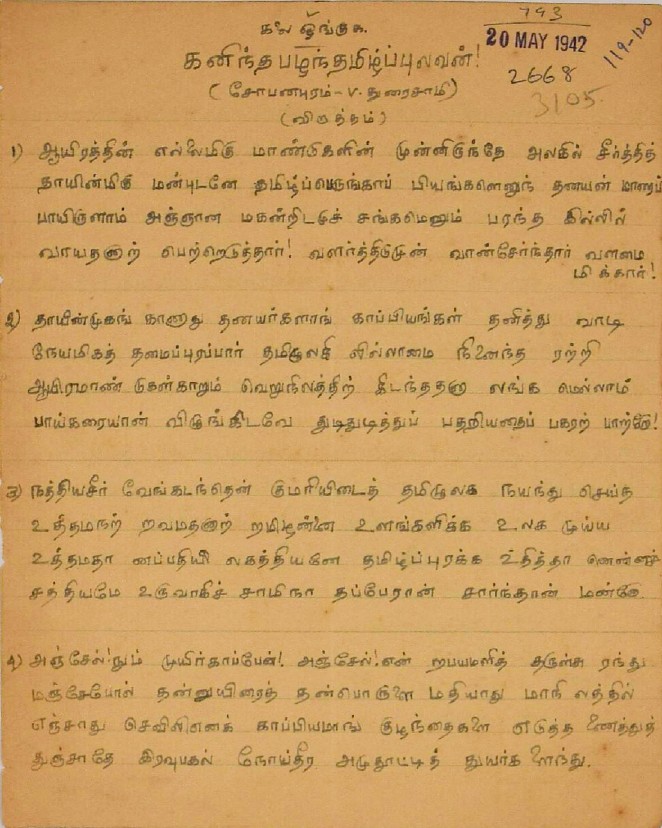 793
கலை ஓங்குக.
20 MAY 1942
119-120
கனிந்த பழந்தமிழ்ப்புலவன்!
2668
(சோபனபுரம்-V. துரைசாமி)
3105
(விருத்தம்)
1) ஆயிரத்தின் எல்லைமிகு மாண்டுகளின் முன்னிருந்தே அலகில் சீர்த்தித்
தாயின்மிகு மன்புடனே தமிழ்ப்பெருங்காப் பியங்களெனுந் தனயன் மாரைப்
பாயிருளாம் அஞ்ஞான மகன்றிடடுச் சங்கமெனும் பரந்த இல்லில்
வாயதனாற் பெற்றெடுத்தார்! வளர்த்திடுமுன் வான்சேர்ந்தார் வளமை
மிக்கார்!
2) தாயின்முகங் காணாது தனயர்களாங் காப்பியங்கள் தனித்து வாடி
நேயமிகத் தமைப்புரப்பார் தமிழுலகி லில்லாமை நினைந்த ரற்றி
ஆயிரமாண் டுகள்காறும் வெறுநிலத்திற் கிடந்ததனா லங்க மெல்லாம்
பாய்கரையான் விழுங்கிடவே துடிதுடித்துப் பதறியதைப் பகரற் பாற்றோ!
3) நத்தியசீர் வேங்கடந்தென் குமரியிடைத் தமிழுலக நயந்து செய்த
உத்தமநற் றவமதனாற் றமிழன்னை உளங்களிக்க உலக முய்ய
உத்தமதா னப்பதியி லகத்தியனே தமிழ்ப்புரக்க உதித்தா னென்னச்
சத்தியமே உருவாகிச் சாமிநா தப்பேரான் சார்ந்தான் மண்ணே
4) அஞ்சேல்! நும் முயிர்காப்பேன்! அஞ்சேல்! என் றபயமளித் தருள்சு ரந்து
மஞ்சேபோல் தன்னுயிரைத் தன்பொருளை மதியாது மாநி லத்தில்
எஞ்சாது செவிலிஎனக் காப்பியமாங் குழந்தைகளை எடுத்த ணைத்துத்
துஞ்சாதே இரவுபகல் நோய்தீர அமுதூட்டித் துயர்க ளைந்து.